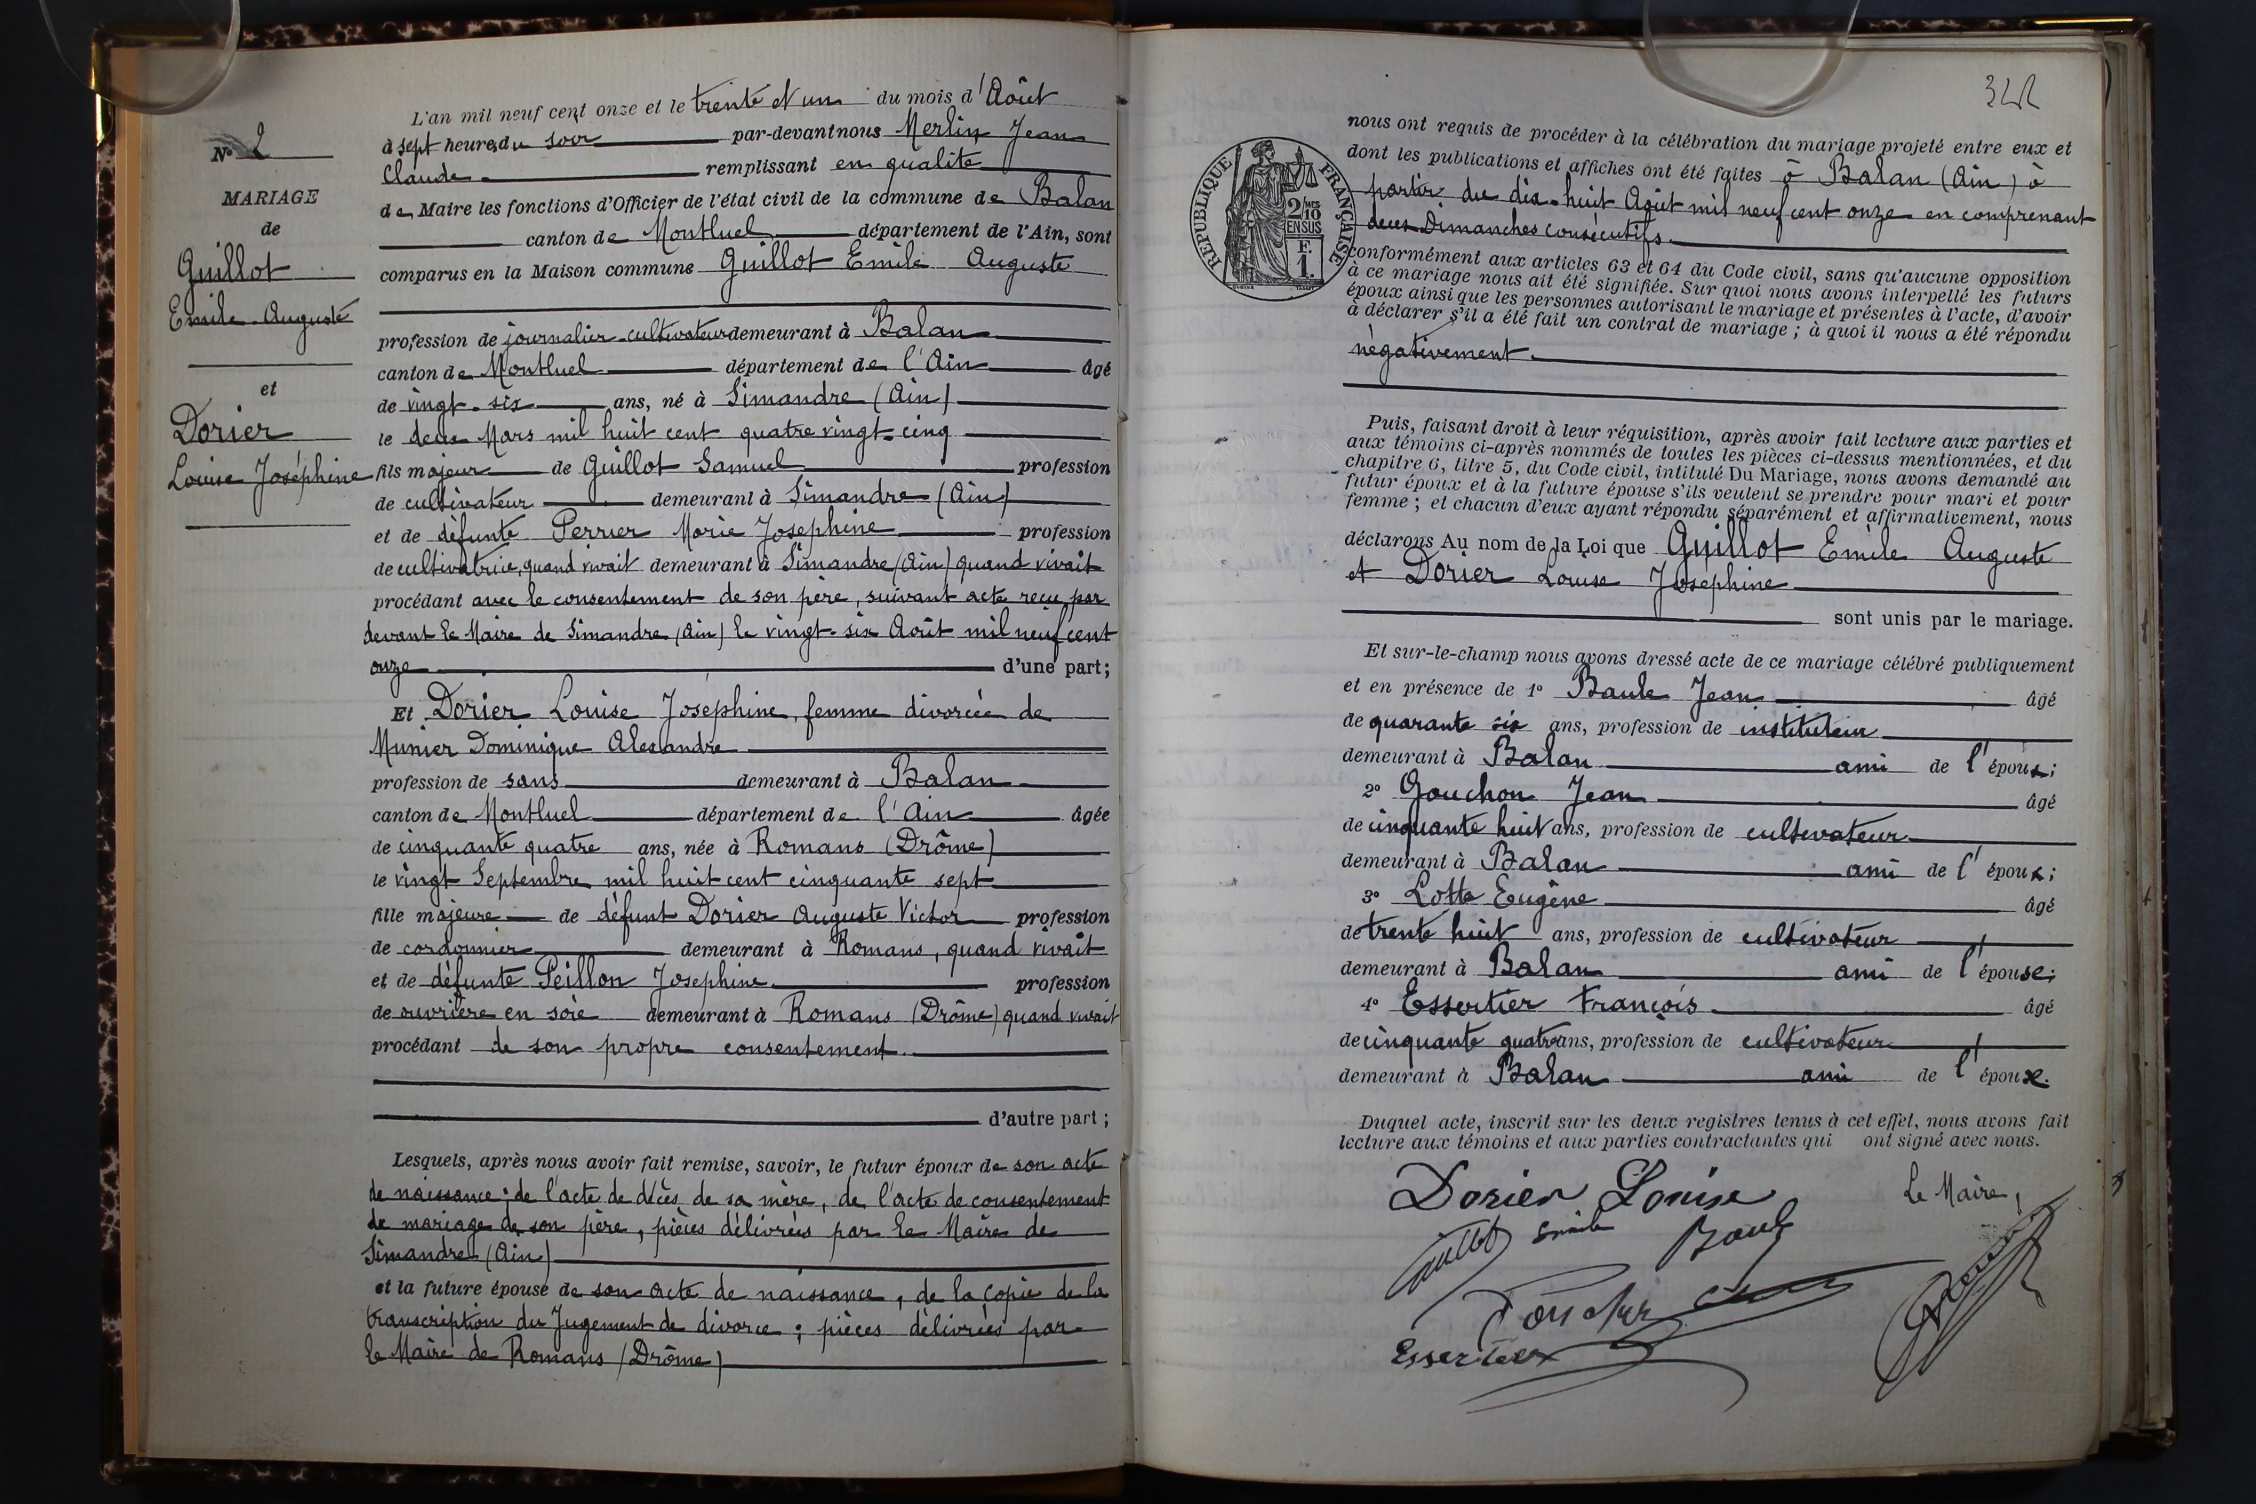 L'an mil neuf cent onze et le trente et un du mois d'Août
à sept heures du soir par-devant nous Merlin Jean
Claude remplissant en qualité
de Maire les fonctions d'Officier de l'état civil de la commune de Balan
canton de Montluel département de l'Ain, sont
comparus en la Maison commune Guillot Emile Auguste
profession de journalier-cultivateur demeurant à Balan
canton de Montluel département de l'Ain âgé
de vingt-six ans, né à Simandre (Ain)
le deux Mars mil huit cent quatre vingt-cinq
fils majeur de Guillot Samuel profession
de cultivateur demeurant à Simandre (Ain)
et de défunte Perrier Marie Josephine profession
de cultivatrice, quand vivait demeurant à Simandre (Ain) quand vivait
procédant avec le consentement de son père, suivant acte reçu par
devant le Maire de Simandre (Ain) le vingt-six Août mil neuf cent
onze d'une part;
Et Dorier Louise Joséphine, femme divorcée de
Munier Dominique Alexandre
profession de sans demeurant à Balan
canton de Montluel département de l'Ain âgée
de cinquante quatre ans, née à Romans (Drôme)
le vingt Septembre mil huit cent cinquante sept
fille majeure de défunt Dorier Auguste Victor profession
de cordonnier demeurant à Romans, quand vivait
et de défunte Peillon Josephine profession
de ouvrière en soie demeurant à Romans (Drôme) quand vivait
procédant de son propre consentement.
d'autre part;
Lesquels, après nous avoir fait remise, savoir, le futur époux de son acte
de naissance; de l'acte de décès de sa mère, de l'acte de consentement
de mariage de son père, pièces délivrées par le Maire de
Simandre (Ain)
et la future épouse de son acte de naissance, de la copie de la
transcription du Jugement de divorce; pièces délivrées par
le Maire de Romans (Drôme)
N° 2
MARIAGE
de
Guillot
Emile Auguste
et
Dorier
Louise Joséphine
342
REPUBLIQUE FRANÇAISE
2/10 MES
EN SUS
F.
1.
nous ont requis de procéder à la célébration du mariage projeté entre eux et
dont les publications et affiches ont été faites à Balan (Ain) à
partir du dix-huit Août mil neuf cent onze en comprenant
deux Dimanches consécutifs.
conformément aux articles 63 et 64 du Code civil, sans qu'aucune opposition
à ce mariage nous ait été signifiée. Sur quoi nous avons interpellé les futurs
époux ainsi que les personnes autorisant le mariage et présentes à l'acte, d'avoir
à déclarer s'il a été fait un contrat de mariage; à quoi il nous a été répondu
négativement.
Puis, faisant droit à leur réquisition, après avoir fait lecture aux parties et
aux témoins ci-après nommés de toutes les pièces ci-dessus mentionnées, et du
chapitre 6, titre 5, du Code civil, intitulé Du Mariage, nous avons demandé au
futur époux et à la future épouse s'ils veulent se prendre pour mari et pour
femme; et chacun d'eux ayant répondu séparément et affirmativement, nous
déclarons Au nom de la Loi que Guillot Emile Auguste
et Dorier Louise Josephine
sont unis par le mariage.
Et sur-le-champ nous avons dressé acte de ce mariage célébré publiquement
et en présence de 1° Baule Jean âgé
de quarante six ans, profession de instituteur
demeurant à Balan ami de l'époux;
2° Gouchon Jean âgé
de cinquante huit ans, profession de cultivateur
demeurant à Balan ami de l'époux;
3° Lotte Eugène âgé
de trente huit ans, profession de cultivateur
demeurant à Balan ami de l'épouse;
4° Essertier François âgé
de cinquante quatre ans, profession de cultivateur
demeurant à Balan ami de l'épouse.
Duquel acte, inscrit sur les deux registres tenus à cet effet, nous avons fait
lecture aux témoins et aux parties contractantes qui ont signé avec nous.
Dorier Louise
Le Maire,
Guillot Emile
Baule
Essertier